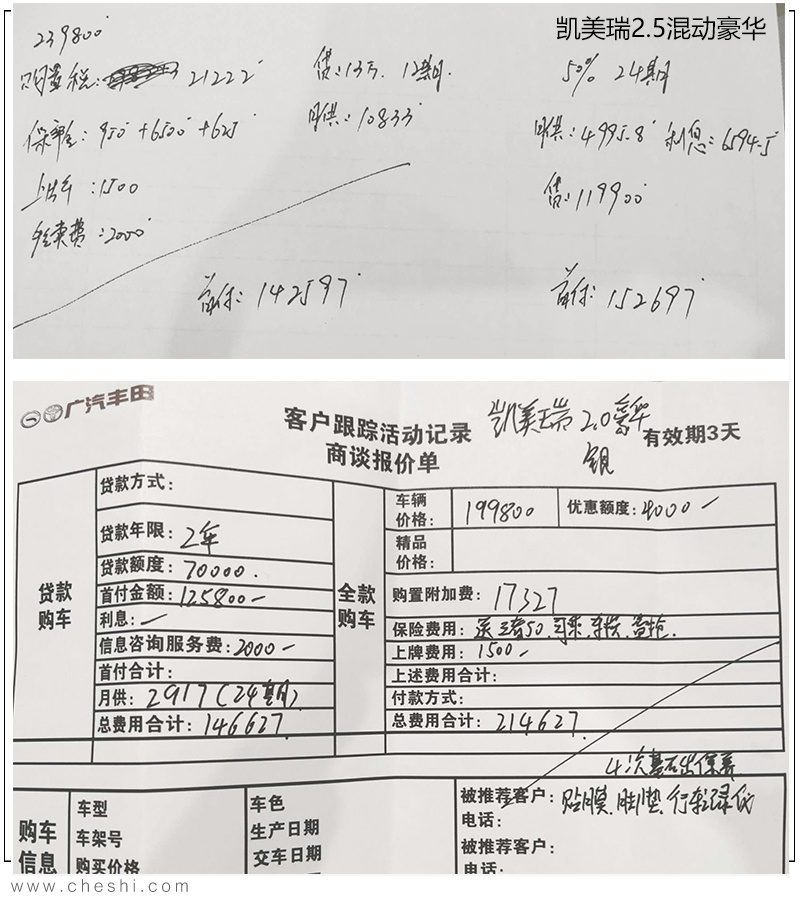 凯美瑞2.5混动豪华
239800
购置税: 21222
保险: 950 + 6500 + 625
上牌: 1500
手续费: 2000
贷: 13万. 12期.
月供: 10833
首付: 142597
50% 24期
月供: 4995.8 利息: 6594.5
贷: 119900
首付: 152697
广汽丰田
客户跟踪活动记录
商谈报价单
凯美瑞 2.0豪华
银
有效期3天
贷款购车
贷款方式:
贷款年限: 2年
贷款额度: 70000.
首付金额: 125800-
利息: -
信息咨询服务费: 2000-
首付合计:
月供: 2917 (24期)
总费用合计: 146627
全款购车
车辆价格: 199800 优惠额度: 4000-
精品价格:
购置附加费: 17327
保险费用: 送 三者50. 司乘. 车损. 盗抢.
上牌费用: 1500-
上述费用合计:
付款方式:
总费用合计: 214627
4次基础保养
购车信息
车型
车架号
购买价格
车色
生产日期
交车日期
被推荐客户: 贴膜. 脚垫. 行车记录仪
电话:
被推荐客户:
电话:
www.cheshi.com